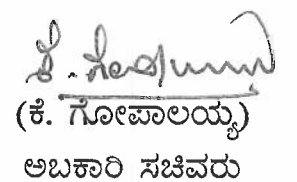 (ಕೆ. ಗೋಪಾಲಯ್ಯ)
ಅಬಕಾರಿ ಸಚಿವರು